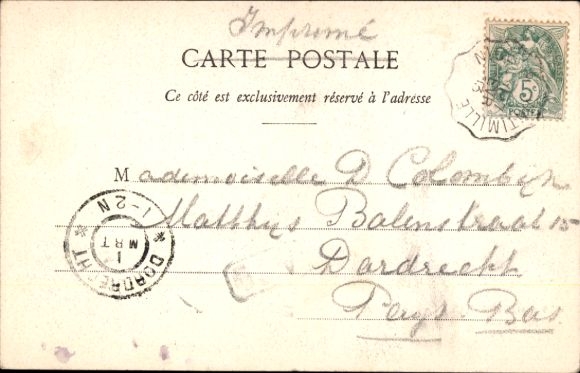 Imprimé
CARTE POSTALE
Ce côté est exclusivement réservé à l'adresse
Mademoiselle D Colombijn
Matthys Balenstraat 15
Dordrecht
Pays-Bas
5c
POSTES
TIMILLE
DORDRECHT
1-2N
1
MRT